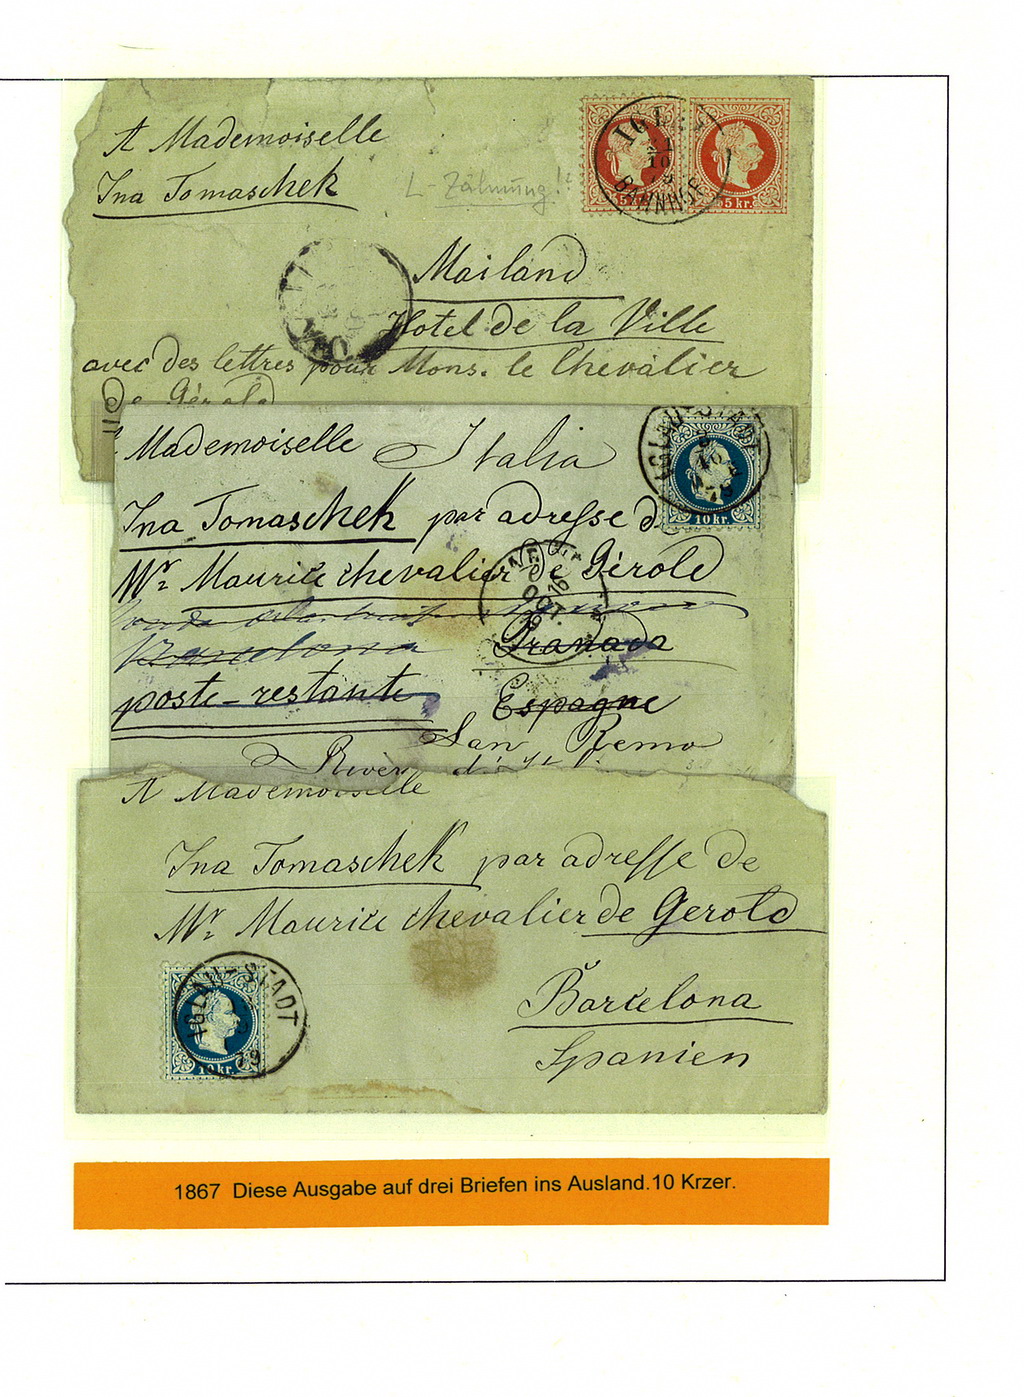 A Mademoiselle
Ina Tomaschek
L-Zähnung!?
5 kr.
5 kr.
BAHNHOF
Mailand
Hotel de la Ville
avec des lettres pour Mons. le Chevalier
de Gérold
Mademoiselle Italia
IGLAU-STADT
10 kr.
Ina Tomaschek par adresse de
Mr. Maurice chevalier de Gérold
16
OCT.
Barcelona Granada
poste-restante Espagne
San Remo
A Mademoiselle
Ina Tomaschek par adresse de
Mr. Maurice chevalier de Gerold
IGLAU-STADT
79
10 kr.
Barcelona
Spanien
1867 Diese Ausgabe auf drei Briefen ins Ausland.10 Krzer.